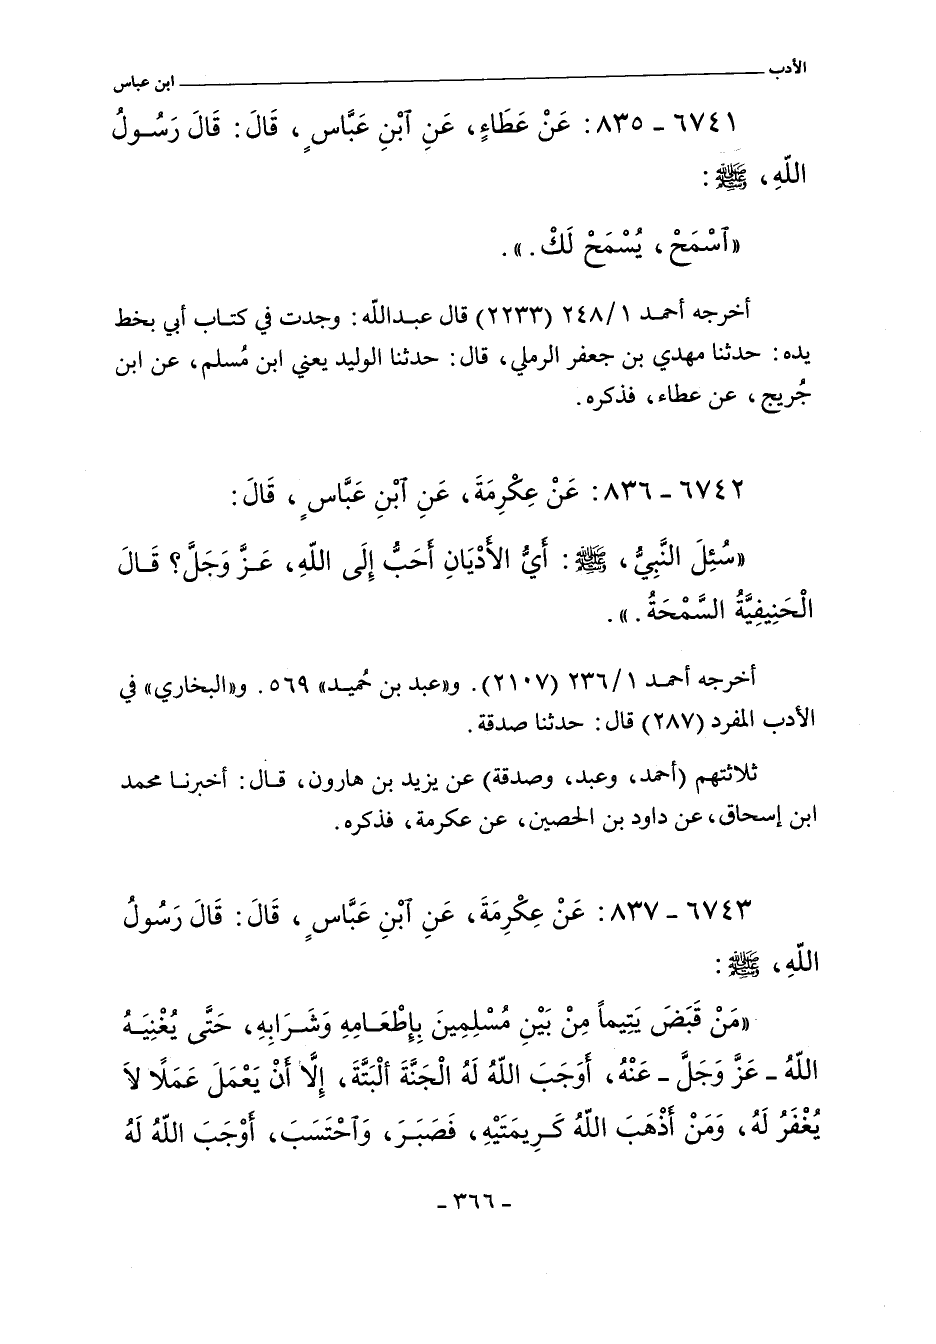 الأدب ـــــــ ابن عباس
٦٧٤١ ـ ٨٣٥: عَنْ عَطَاءٍ، عَنِ ٱبْنِ عَبَّاسٍ، قَالَ: قَالَ رَسُولُ
اللّهِ، ﷺ:
«ٱسْمَحْ، يُسْمَحْ لَكَ.».
أخرجه أحمد ٢٤٨/١ (٢٢٣٣) قال عبدالله: وجدت في كتاب أبي بخط
يده: حدثنا مهدي بن جعفر الرملي، قال: حدثنا الوليد يعني ابن مُسلم، عن ابن
جُريج، عن عطاء، فذكره.
٦٧٤٢ ـ ٨٣٦: عَنْ عِكْرِمَةَ، عَنِ ٱبْنِ عَبَّاسٍ، قَالَ:
«سُئِلَ النَّبِيُّ، ﷺ: أَيُّ الأَدْيَانِ أَحَبُّ إِلَى اللّهِ، عَزَّ وَجَلَّ؟ قَالَ
الْحَنِيفِيَّةُ السَّمْحَةُ.».
أخرجه أحمد ٢٣٦/١ (٢١٠٧). و«عبد بن حُميد» ٥٦٩. و«البخاري» في
الأدب المفرد (٢٨٧) قال: حدثنا صدقة.
ثلاثتهم (أحمد، وعبد، وصدقة) عن يزيد بن هارون، قال: أخبرنا محمد
ابن إسحاق، عن داود بن الحصين، عن عكرمة، فذكره.
٦٧٤٣ ـ ٨٣٧: عَنْ عِكْرِمَةَ، عَنِ ٱبْنِ عَبَّاسٍ، قَالَ: قَالَ رَسُولُ
اللّهِ، ﷺ:
«مَنْ قَبَضَ يَتِيماً مِنْ بَيْنِ مُسْلِمِينَ بِإِطْعَامِهِ وَشَرَابِهِ، حَتَّى يُغْنِيَهُ
اللّهُ ـ عَزَّ وَجَلَّ ـ عَنْهُ، أَوْجَبَ اللّهُ لَهُ الْجَنَّةَ ألْبَتَّةَ، إِلَّا أَنْ يَعْمَلَ عَمَلًا لاَ
يُغْفَرُ لَهُ، وَمَنْ أَذْهَبَ اللّهُ كَرِيمَتَيْهِ، فَصَبَرَ، وَٱحْتَسَبَ، أَوْجَبَ اللّهُ لَهُ
ـ ٣٦٦ ـ